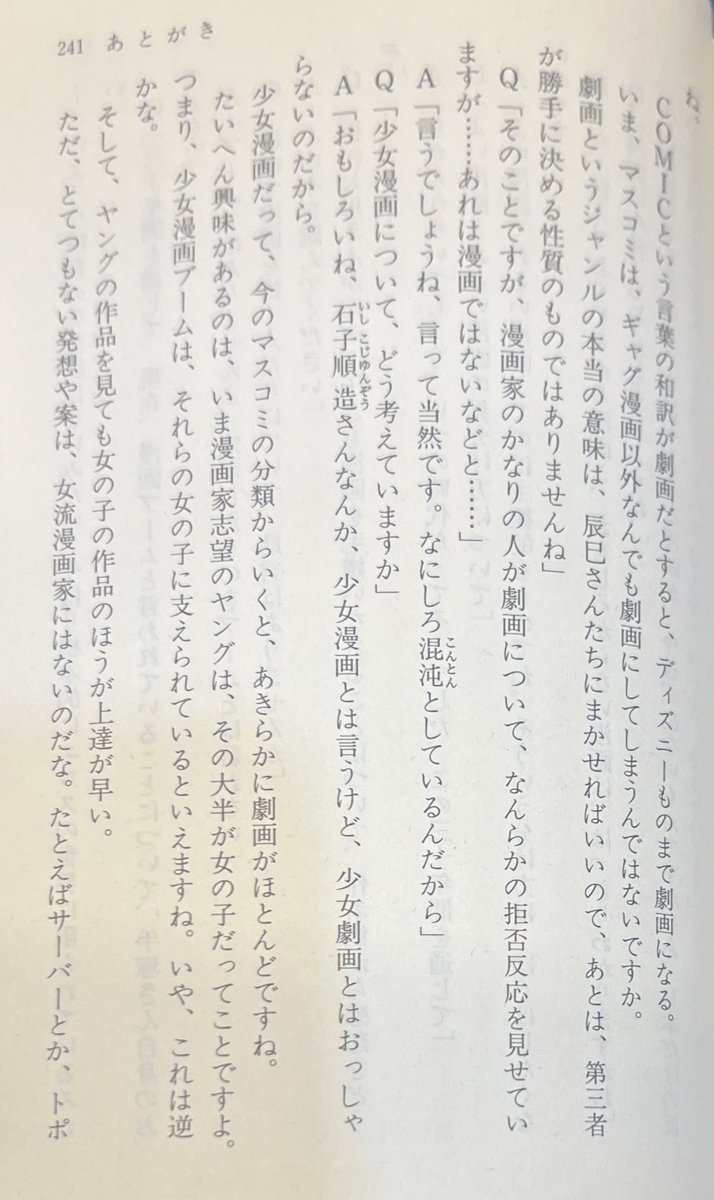 241 あとがき
ね。
COMICという言葉の和訳が劇画だとすると、ディズニーものまで劇画になる。
いま、マスコミは、ギャグ漫画以外なんでも劇画にしてしまうんではないですか。
劇画というジャンルの本当の意味は、辰巳さんたちにまかせればいいので、あとは、第三者
が勝手に決める性質のものではありませんね」
Q「そのことですが、漫画家のかなりの人が劇画について、なんらかの拒否反応を見せてい
ますが……あれは漫画ではないなどと……」
A「言うでしょうね、言って当然です。なにしろ混沌としているんだから」
こんとん
Q「少女漫画について、どう考えていますか」
A「おもしろいね、石子順造さんなんか、少女漫画とは言うけど、少女劇画とはおっしゃ
いしこじゆんぞう
らないのだから。
少女漫画だって、今のマスコミの分類からいくと、あきらかに劇画がほとんどですね。
たいへん興味があるのは、いま漫画家志望のヤングは、その大半が女の子だってことですよ。
つまり、少女漫画ブームは、それらの女の子に支えられているといえますね。いや、これは逆
かな。
そして、ヤングの作品を見ても女の子の作品のほうが上達が早い。
ただ、とてつもない発想や案は、女流漫画家にはないのだな。たとえばサーバーとか、トポ